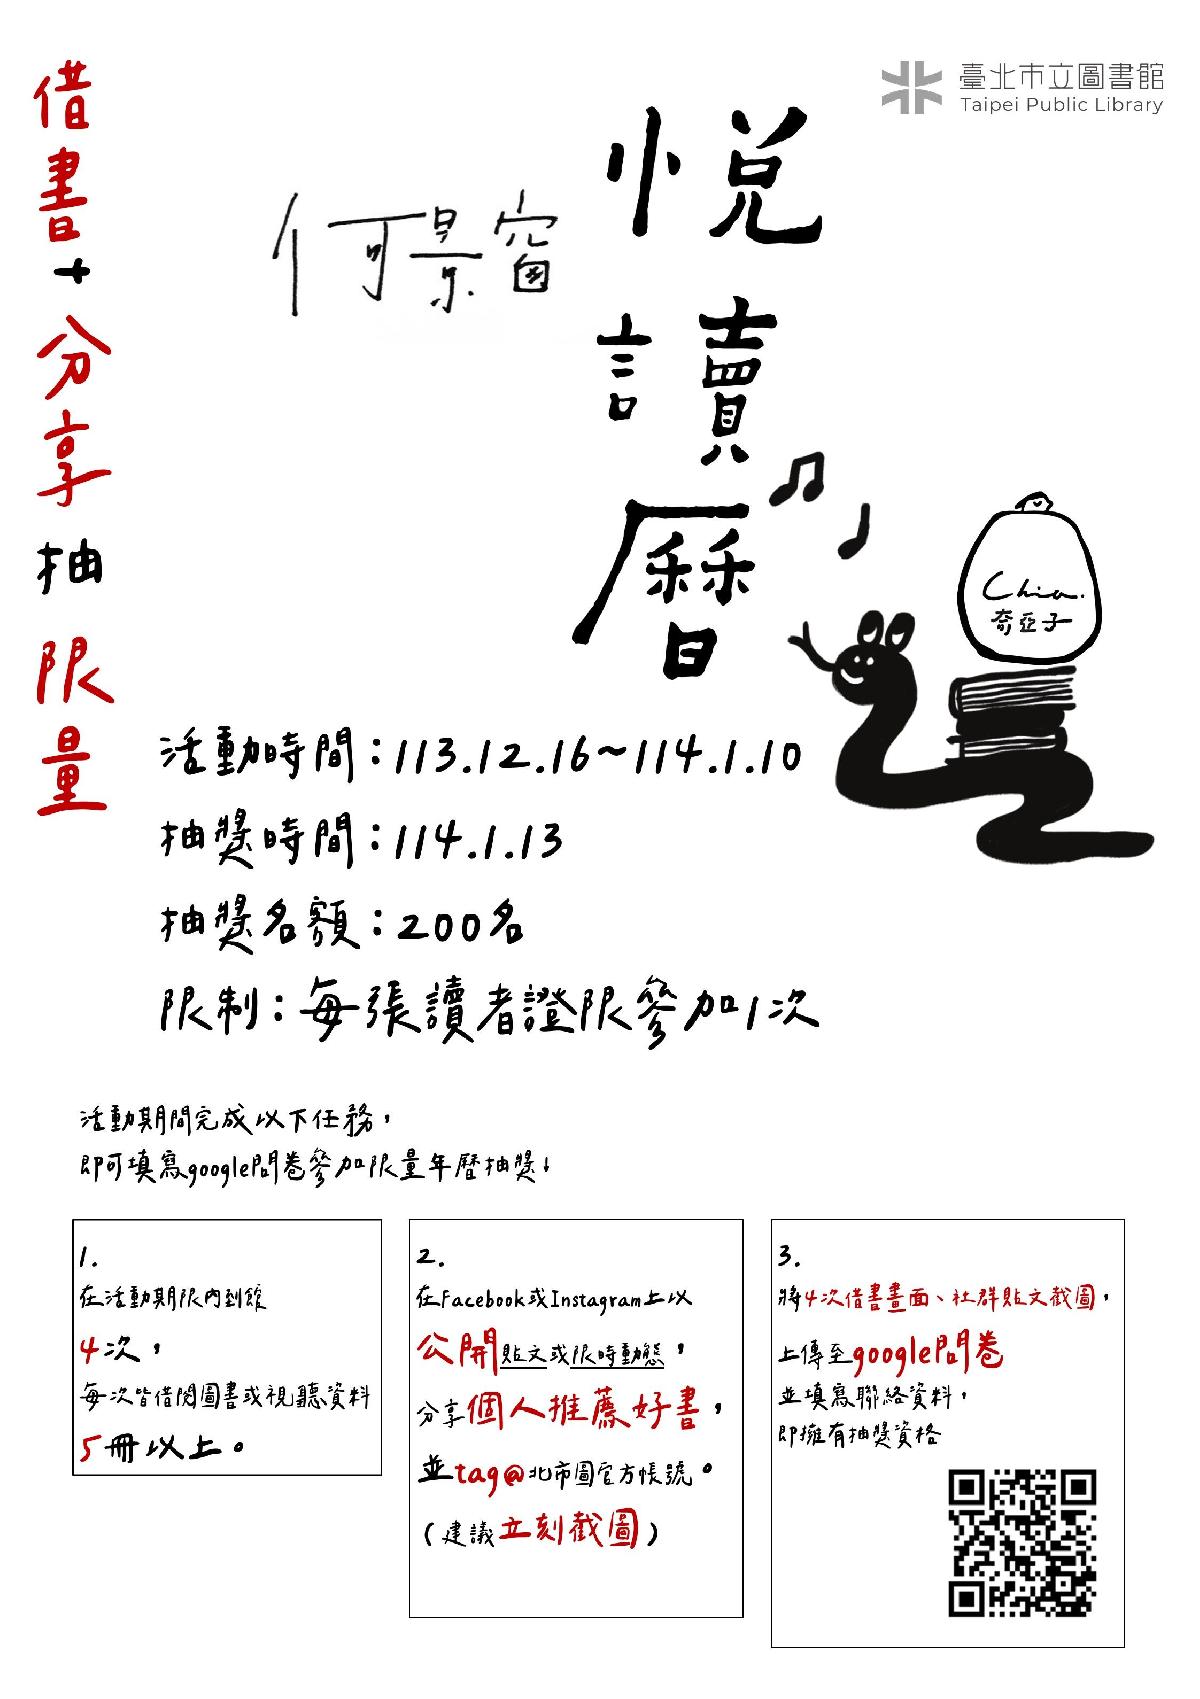 臺北市立圖書館
Taipei Public Library
借書+分享抽限量
何景窗
悅
讀
曆
Chia.
奇亞子
活動時間：113.12.16~114.1.10
抽獎時間：114.1.13
抽獎名額：200名
限制：每張讀者證限參加1次
活動期間完成以下任務，
即可填寫google問卷參加限量年曆抽獎↓
1.
在活動期限內到館
4次，
每次皆借閱圖書或視聽資料
5冊以上。
2.
在Facebook或Instagram上以
公開貼文或限時動態，
分享個人推薦好書，
並tag@北市圖官方帳號。
（建議立刻截圖）
3.
將4次借書畫面、社群貼文截圖，
上傳至google問卷
並填寫聯絡資料，
即擁有抽獎資格